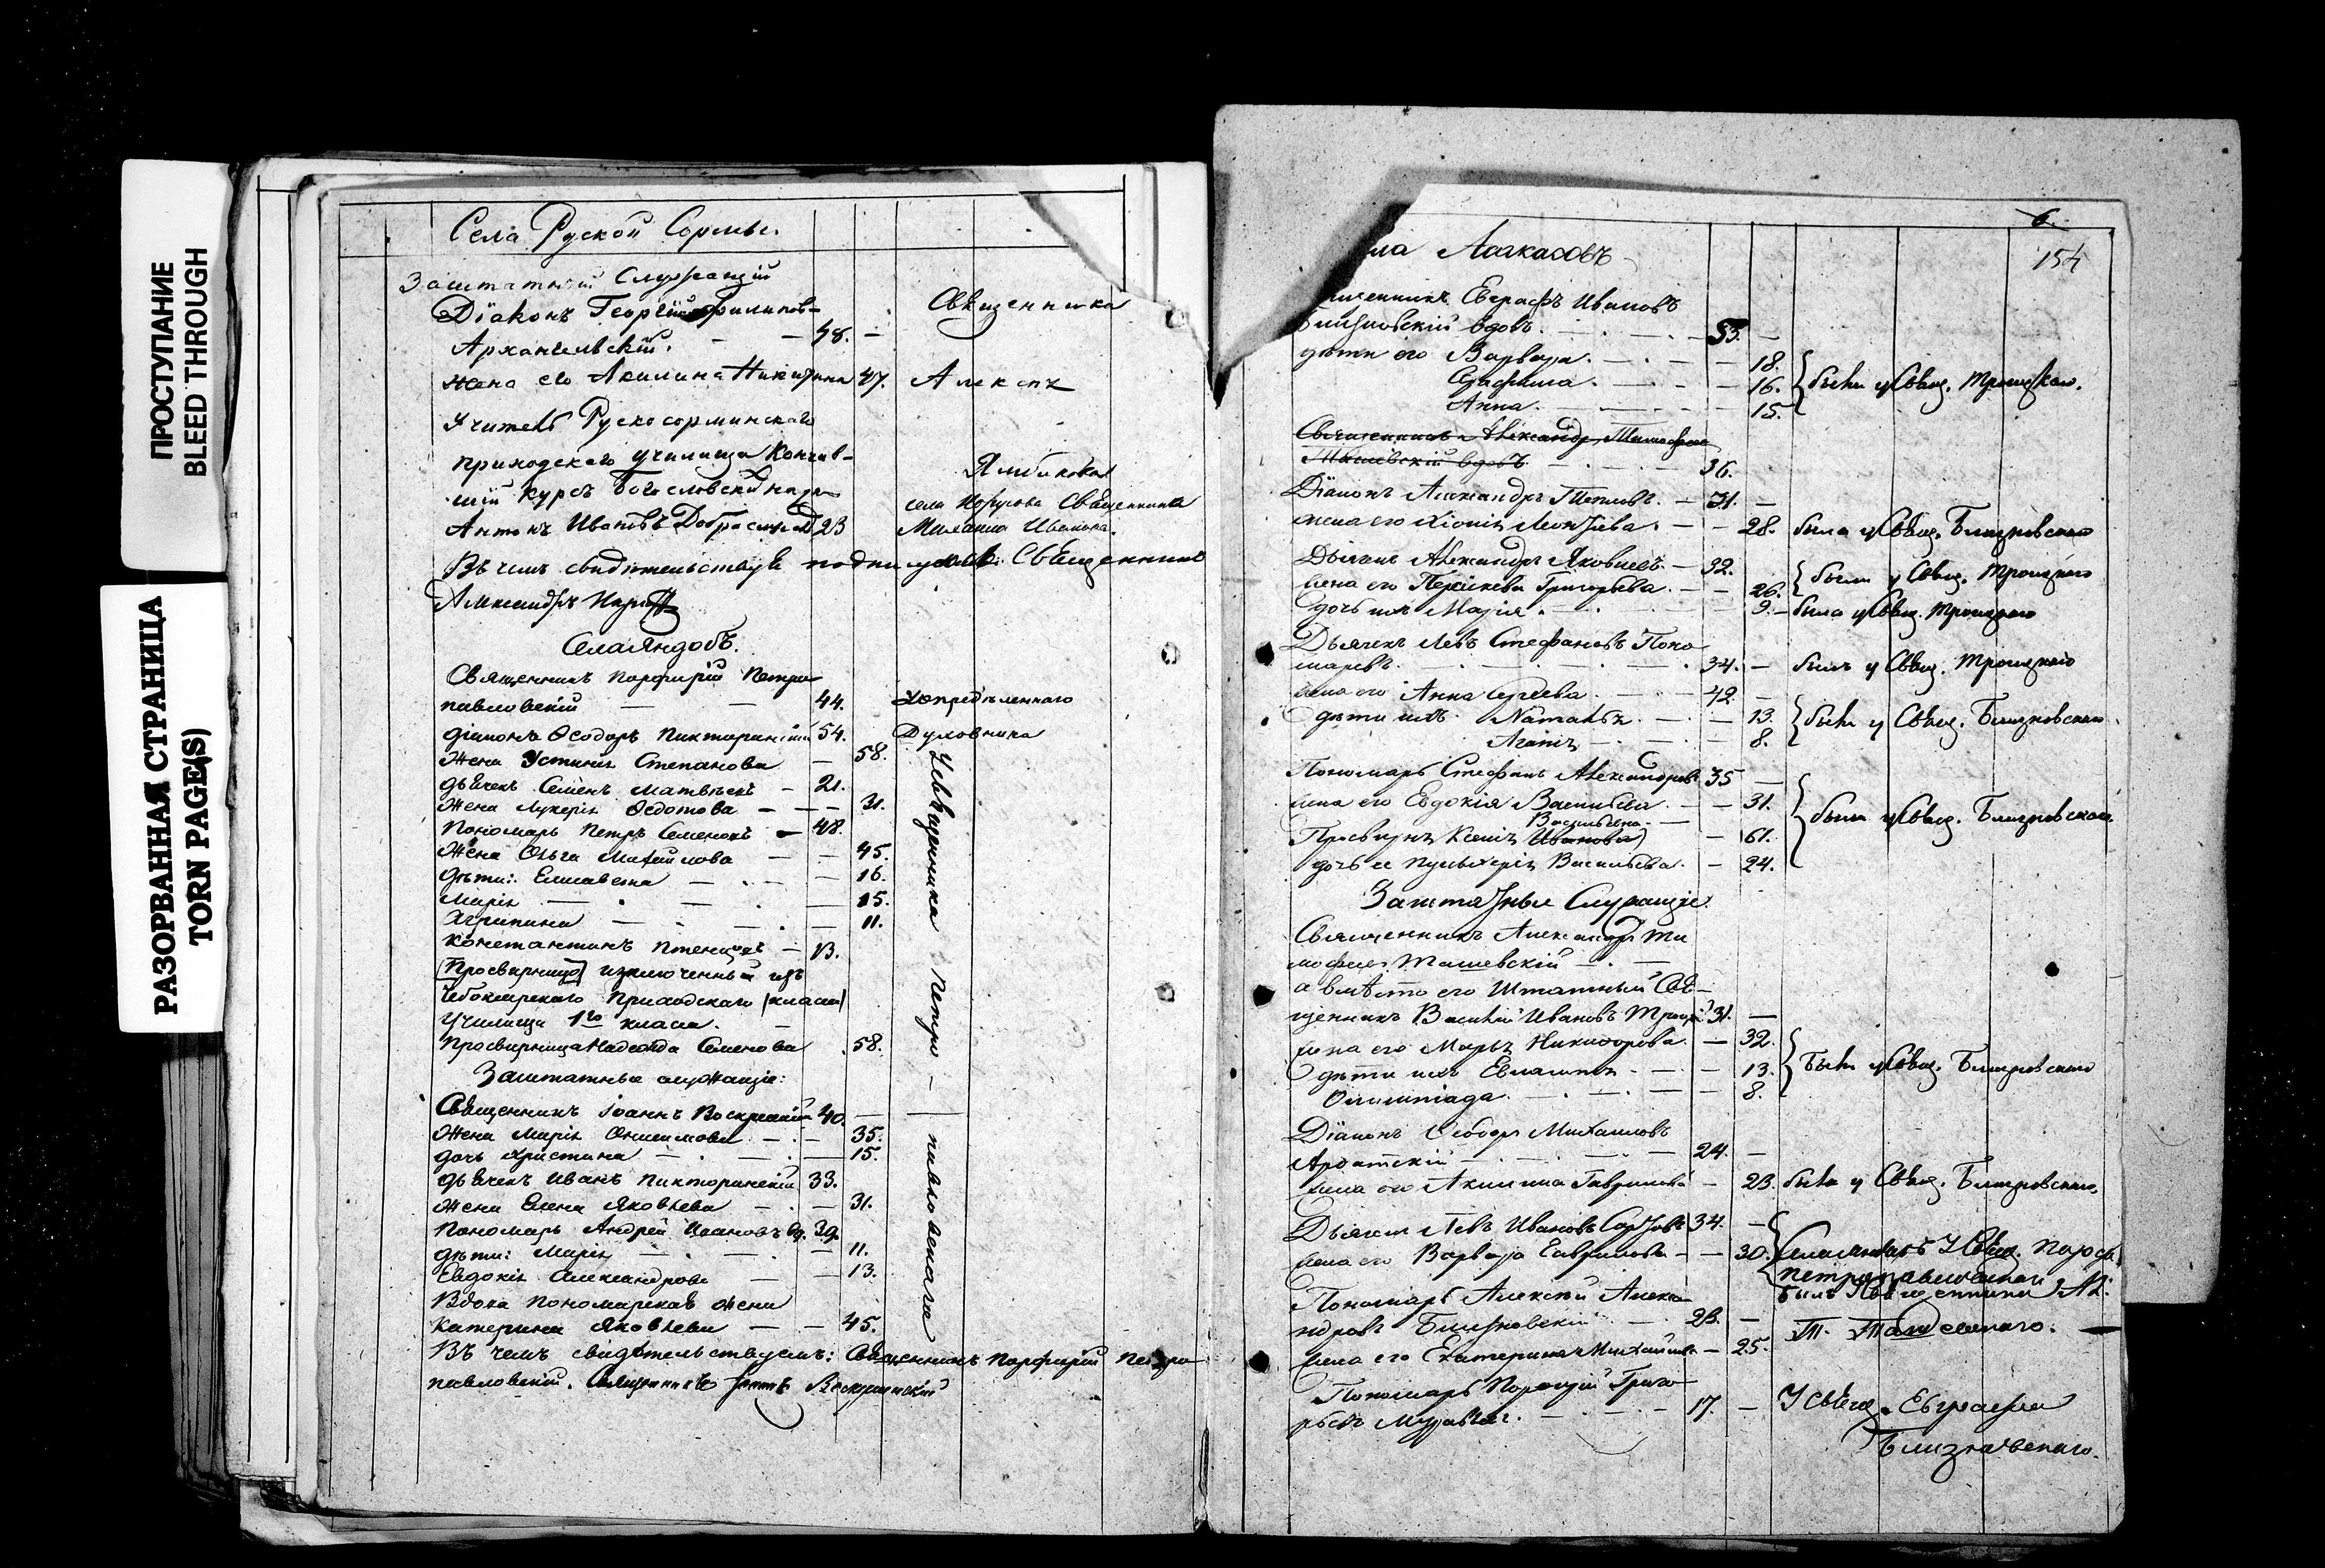 ПРОСТУПАНИЕ
BLEED THROUGH
РАЗОРВАННАЯ СТРАНИЦА
TORN PAGE(S)
Села Руской Сормы.
Заштатный Служащій
Діаконъ Георгій Филипов-
Архангельскій. — — 48. —
Священника
жена его Акилина Никитина 47.
Алекса
Учитель Рускосорминскаго
приходскаго училища Кончив-
шій курсъ Богословскій
Антонъ Ивановъ 23
села Священника
Михаила Иванова.
Въ чемъ свидѣтельствуя подписуюсь: Священникъ
Александръ
Села Яндобъ.
Священникъ Порфирій Петро
павловскій — — 44.
Уопредѣленнаго
діаконъ Ѳеодоръ Пикторинскій 54.
Духовника
Жена Устинія Степанова — 58.
дьячекъ Семенъ Матвѣевъ — 21.
Жена Лукерія Ѳедотова — — 31.
Пономарь Петръ Семеновъ — 48.
Жена Ольга Михайлова — — 45.
дѣти: Елисавета — — 16.
Марія — — 15.
Агрипина — — 11.
Константинъ Птенцовъ — 13.
(Просвирница) изключенный изъ
Чебоксарскаго Приходскаго (класса)
Училища 1го класса. —
Просвирница Надежда Семенова 58.
Заштатные служащіе:
Священникъ Іоаннъ Воскресенскій 40. —
Жена Марія Онисимова — 35.
дочь Христина — — 15.
дьячекъ Иванъ Пикторинскій 33.
Жена Елена Яковлева — — 31.
Пономарь Андрей Ивановъ вд. 39.
дѣти: Марія — — 11.
Евдокія Александрова — — 13.
Вдова пономарская жена
Катерина Яковлева — — 45.
Въ чемъ свидѣтельствуемъ: Священникъ Порфирій Петро
павловскій. Священникъ Іоаннъ Воскресенскій
У священника Петро — павловскаго
6.
154
ла
щенникъ Евграфъ Ивановъ
Близновскій вдовъ. — — 53. —
дѣти его Варвара. — — 18.
Серафима. — — 16. были у Свящ. Троицкаго.
Анна. — — 15.
Священникъ Александръ Тимофеевъ
Ташевскій вдовъ — — 36.
Діаконъ Александръ — 31. —
жена его Хіонія Леонтьева. — — 28. была у Свящ. Близновскаго
Дьячекъ Александръ Яковлевъ — 32.
жена его Параскева Григорьева. — — 26. были у Свящ. Троицкаго
дочь ихъ Марія. — 9. — была у Свящ. Троицкаго
Дьячекъ Левъ Стефановъ Поно
маревъ. — — 34. — былъ у Свящ. Троицкаго
жена его Анна Сергеева. — — 42. —
дѣти ихъ. Наталья. — — 13. были у Свящ. Близновскаго.
Агапія — — 8.
Пономарь Стефанъ Александровъ 35 —
жена его Евдокія Васильева. — — 31.
Васильевна. —
Просвирня Ксенія (Иванова) — 61. были у Свящ. Близновскаго.
дочь ее Пульхерія Васильева. — 24.
Заштатные Служащіе.
Священникъ Александръ Ти
мофеевъ Ташевскій — —
а вмѣсто его Штатный Свя-
щенникъ Василій Ивановъ Троицкій 31. —
жена его Марья Никифорова. — 32.
дѣти ихъ Евлампія — — 13. Были у Свящ. Близновскаго
Олимпіада. — — 8.
Діаконъ Ѳеодоръ Михаиловъ
Арбатскій — — 24. —
жена его Акилина Гаврилова — 23. была у Свящ. Близновскаго.
Дьячекъ Левъ Ивановъ 34. —
жена его Варвара Гаврилова — — 30. У Свящ. Порфир.
Петропавловскаго
Пономарь Алексѣй Алекса
Былъ У Священника Ал:
ндровъ Близновскій — — 23. — Т. Ташевскаго.
жена его Екатерина Михайлова — 25.
Пономарь Порфирій Григо
рьевъ — — 17. — У свящ. Евграфа
Близновскаго.